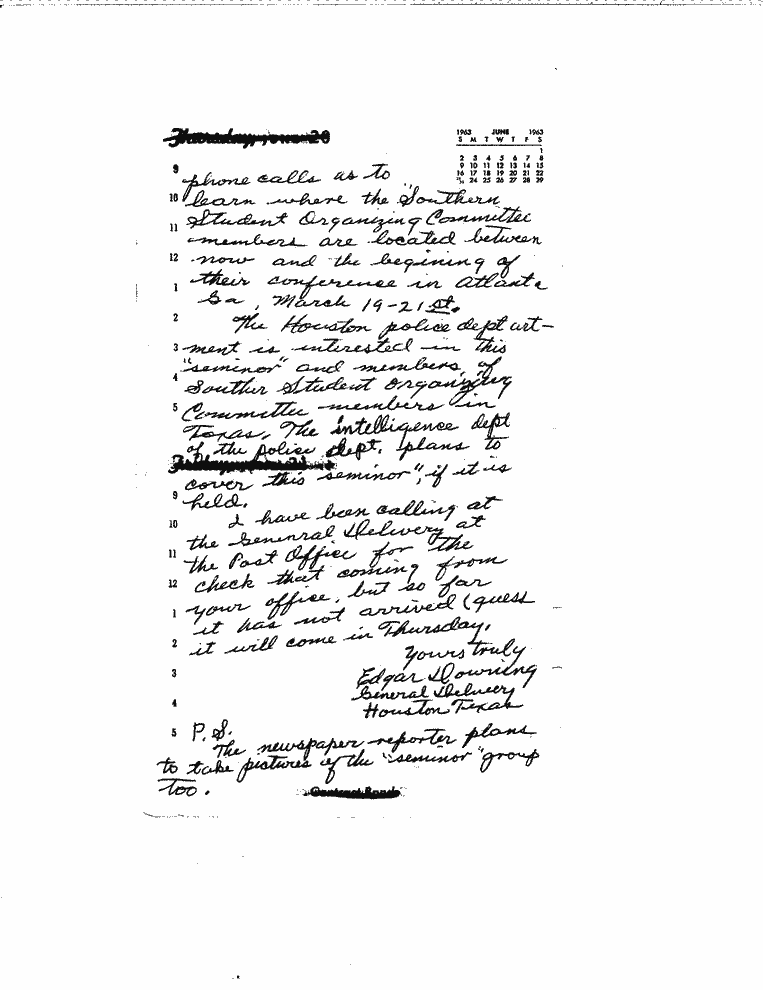 Thursday, June 20
1963 JUNE 1963
S M T W T F S
1
2 3 4 5 6 7 8
9 10 11 12 13 14 15
16 17 18 19 20 21 22
23/30 24 25 26 27 28 29
9 phone calls as to
10 learn where the "Southern
11 Student Organizing Committee
members are located between
12 now and the begining of
1 their conference in Atlanta
Ga, March 19-21st.
2 The Houston police depart-
3 ment is interested in this
"seminor" and members, of
4 Souther Student Organizing
5 Committee members in
Texas. The intelligence dept
of the police dept. plans to
cover this "seminor", if it is
9 held.
10 I have been calling at
the Genenral Delivery at
11 the Post Office for the
12 check that coming from
your office, but so far
1 it has not arrived (guess
2 it will come in Thursday.
Yours truly
3 Edgar Downing
4 General Delivery
Houston Texas
5 P.S.
The newspaper reporter plans
to take pictures of the "seminor" group
too.